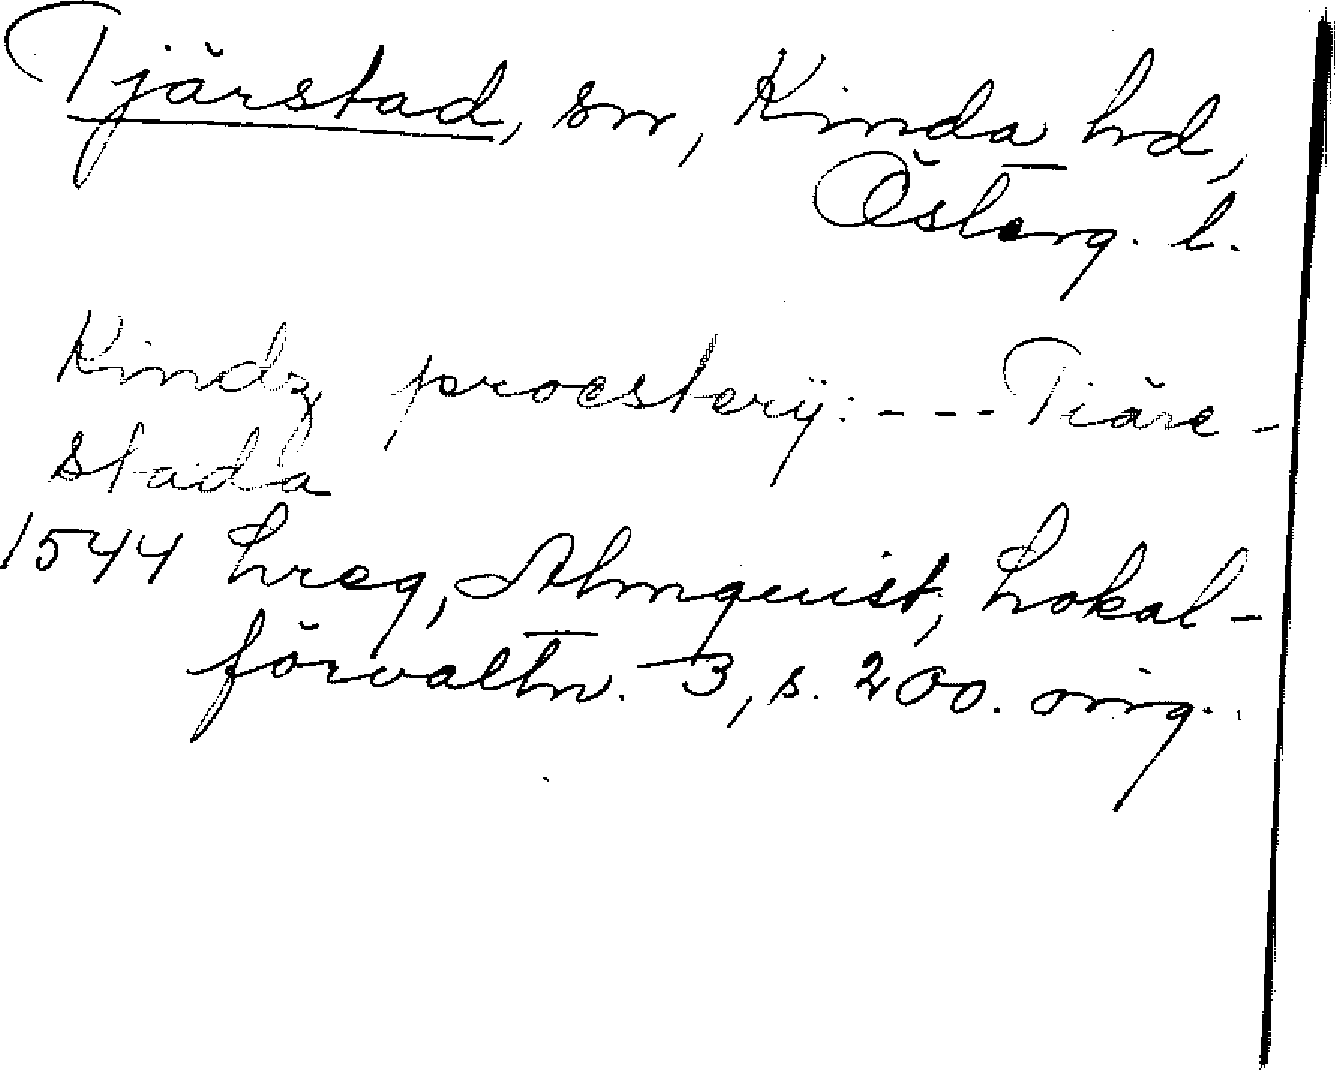 Tjärstad, sn, Kinda hd,
Österg. l.
Kindz proestery̋: - - - Tiäre-
stada
1544 Lreg, Almquist, Lokal-
förvaltn. 3, s. 200. orig.